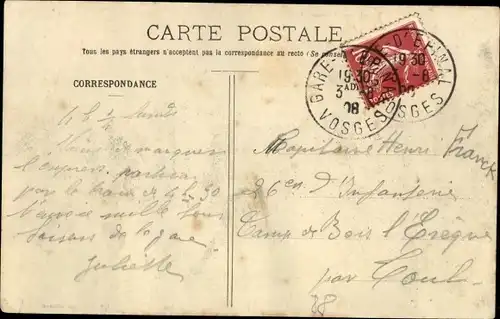 CARTE POSTALE
Tous les pays étrangers n'acceptent pas la correspondance au recto (Se
CORRESPONDANCE
GARE D'EPINAL
19 30
3 -8
08
VOSGES
GARE D'EPINAL
19 30
3 -8
VOSGES
4h ½ lundi
de manquer
l'express partons
par le train de 6 h 30
T'envoie mille bons
baisers de la gare
Juliette
Capitaine Henri Franck
26 en d'Infanterie
Camp de Bois l'Evêque
par Toul
88